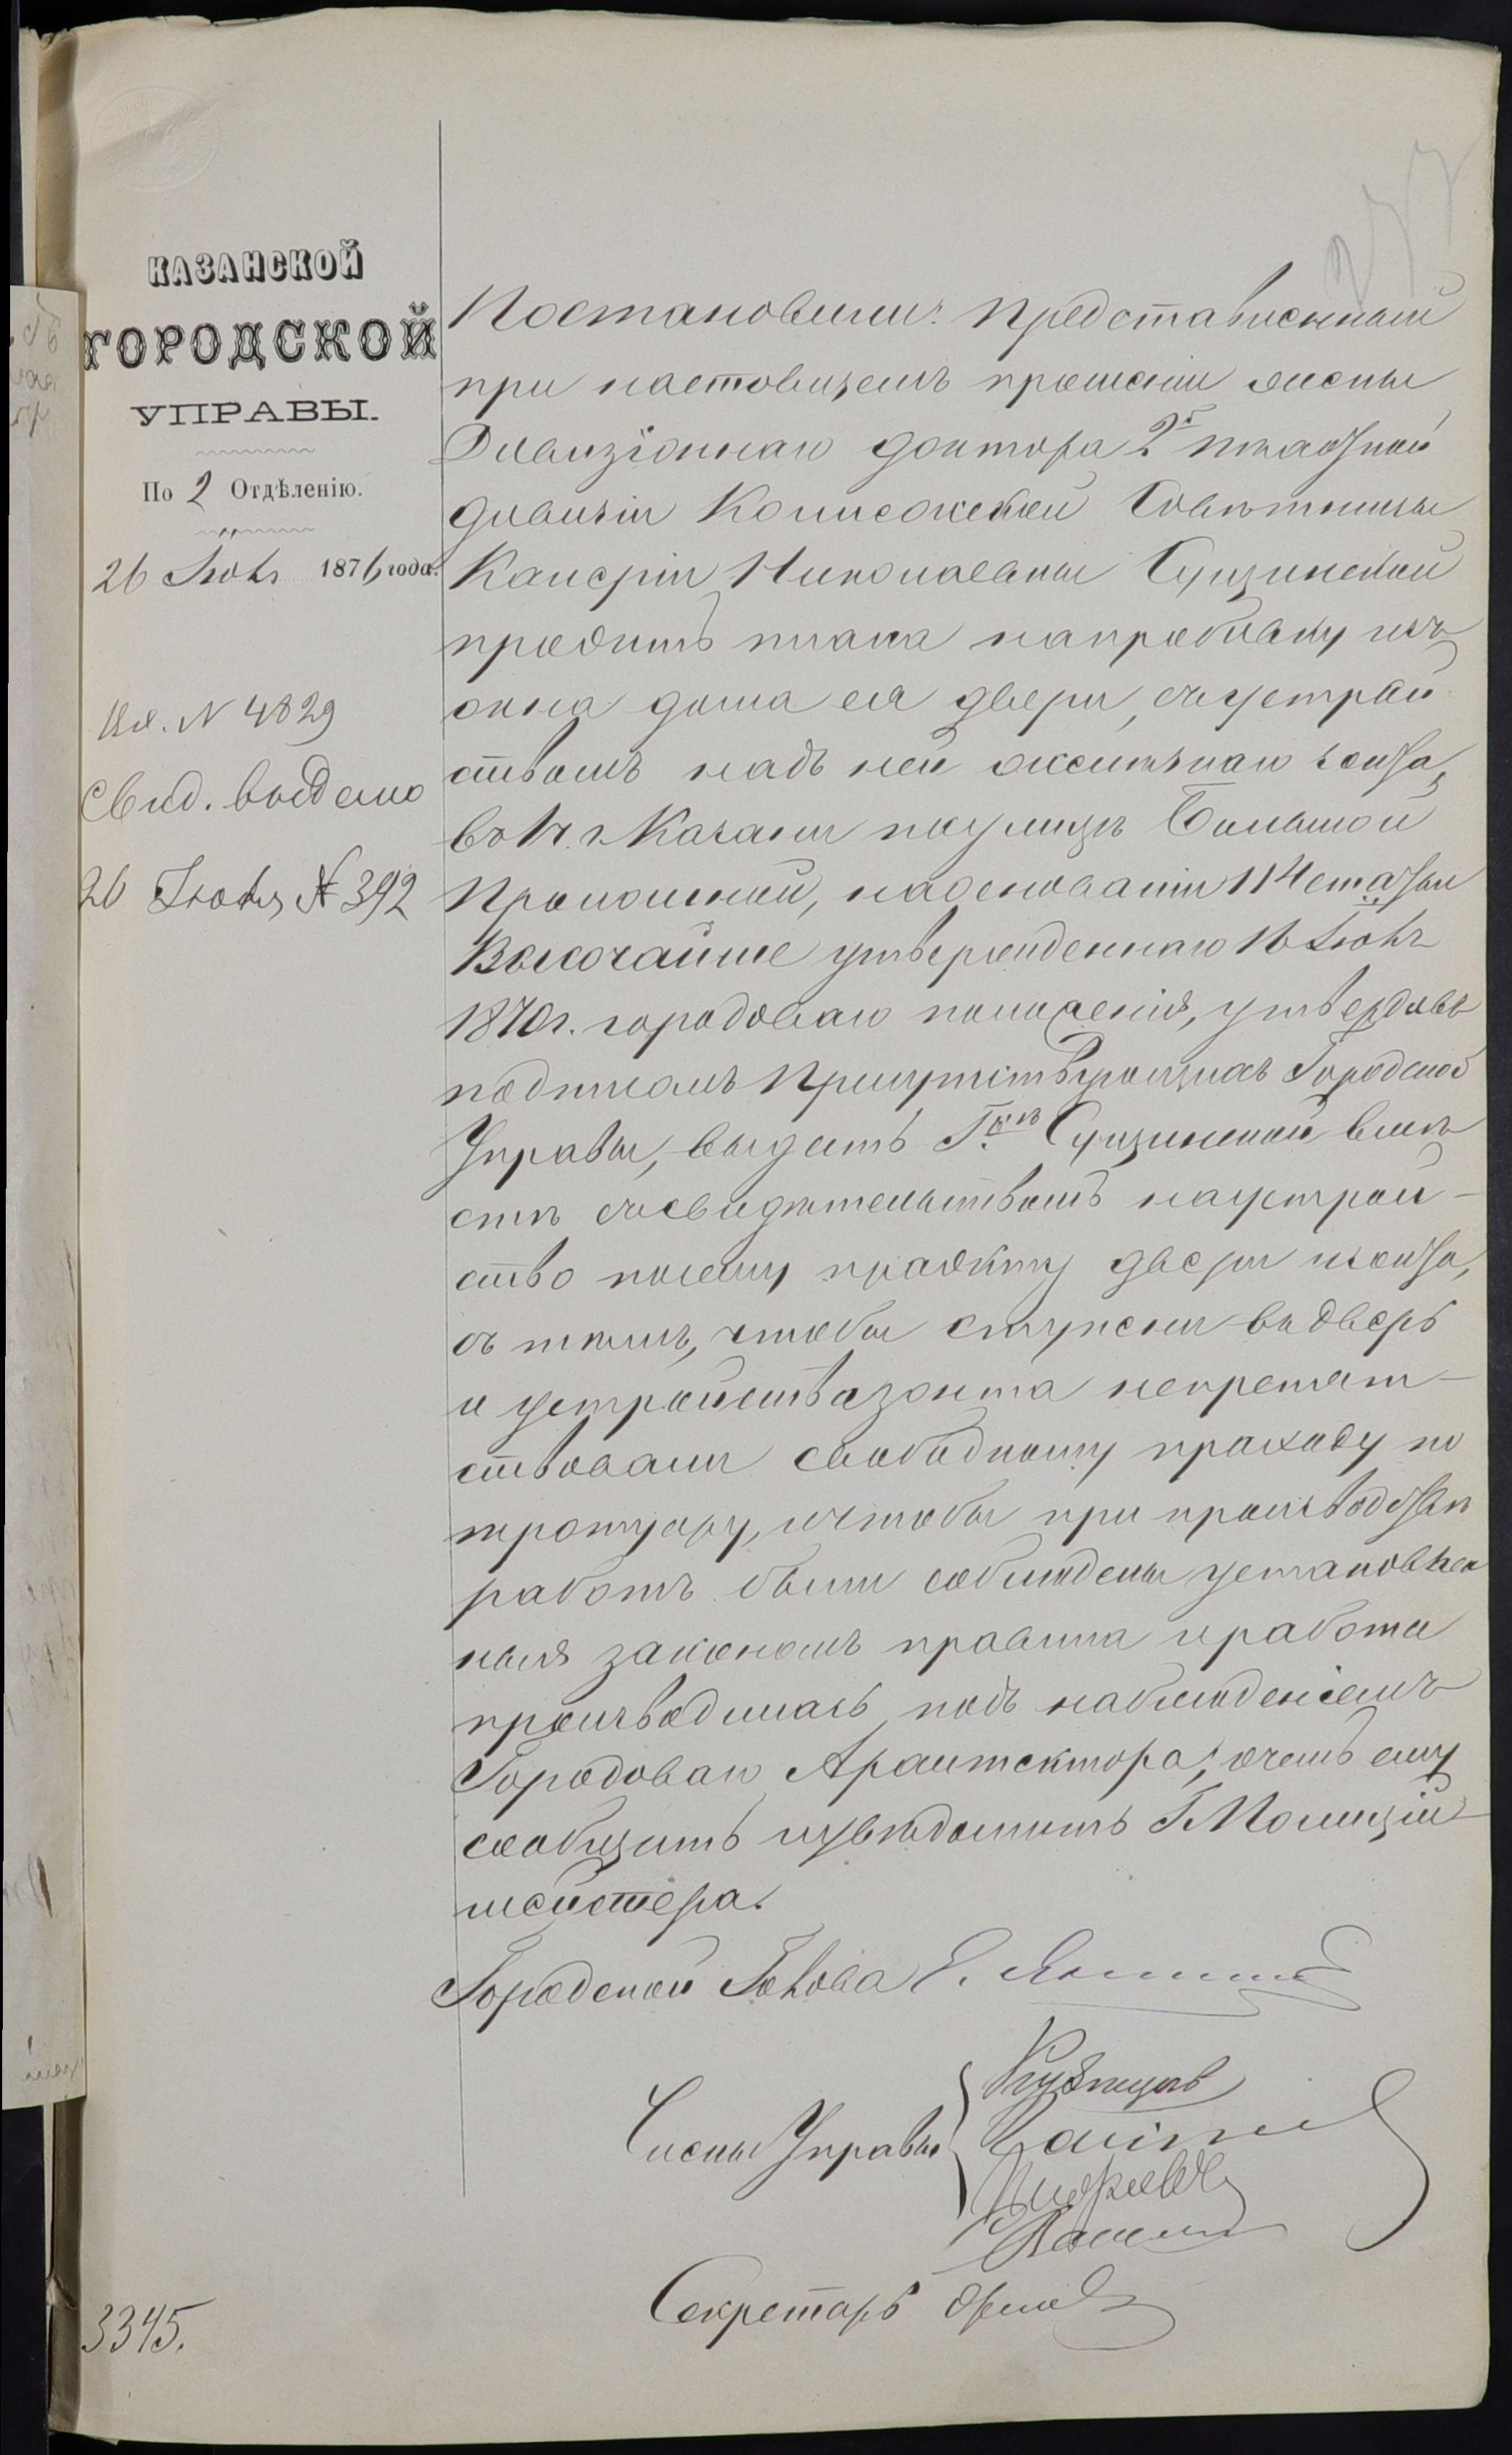 КАЗАНСКОЙ
ГОРОДСКОЙ
УПРАВЫ.
По 2 Отдѣленію.
26 Іюля 1876 года.
Ил. N 4829
Свид. выдано
26 Іюля № 392
Постановили: Представленный
при настоящемъ прошеніи жены
Дивизіоннаго доктора 2й пѣхотной
дивизіи Коллежской Совѣтницы
Николаевны Сущинской
проэктъ плана на пробивку изъ
окна дома ея двери, съ устрой
ствомъ надъ ней желѣзнаго зонта,
въ г. Казани по улицѣ Большой
Проломной, на основаніи 114 статьи
Высочайше утвержденнаго 16 Іюня
1870 г. городоваго положенія, утвердивъ
подписомъ Присутствующихъ Городской
Управы, выдать Г. Сущинской вмѣ
стѣ съ свидѣтельствомъ на устрой-
ство по сему проэкту двери и зонта,
съ тѣмъ, чтобы ступени въ дверь
и устройства зонта не препят-
ствовали свободному проходу по
тротуару, и чтобы при производствѣ
работъ были соблюдены установлен
ныя закономъ правила и работы
производились подъ наблюденіемъ
Городоваго Архитектора, о чемъ ему
сообщить и увѣдомить Г. Полицій-
мейстера.
Городской Голова Е.
Члены Управы Кузнецовъ
Андреевъ
Секретарь
3345.